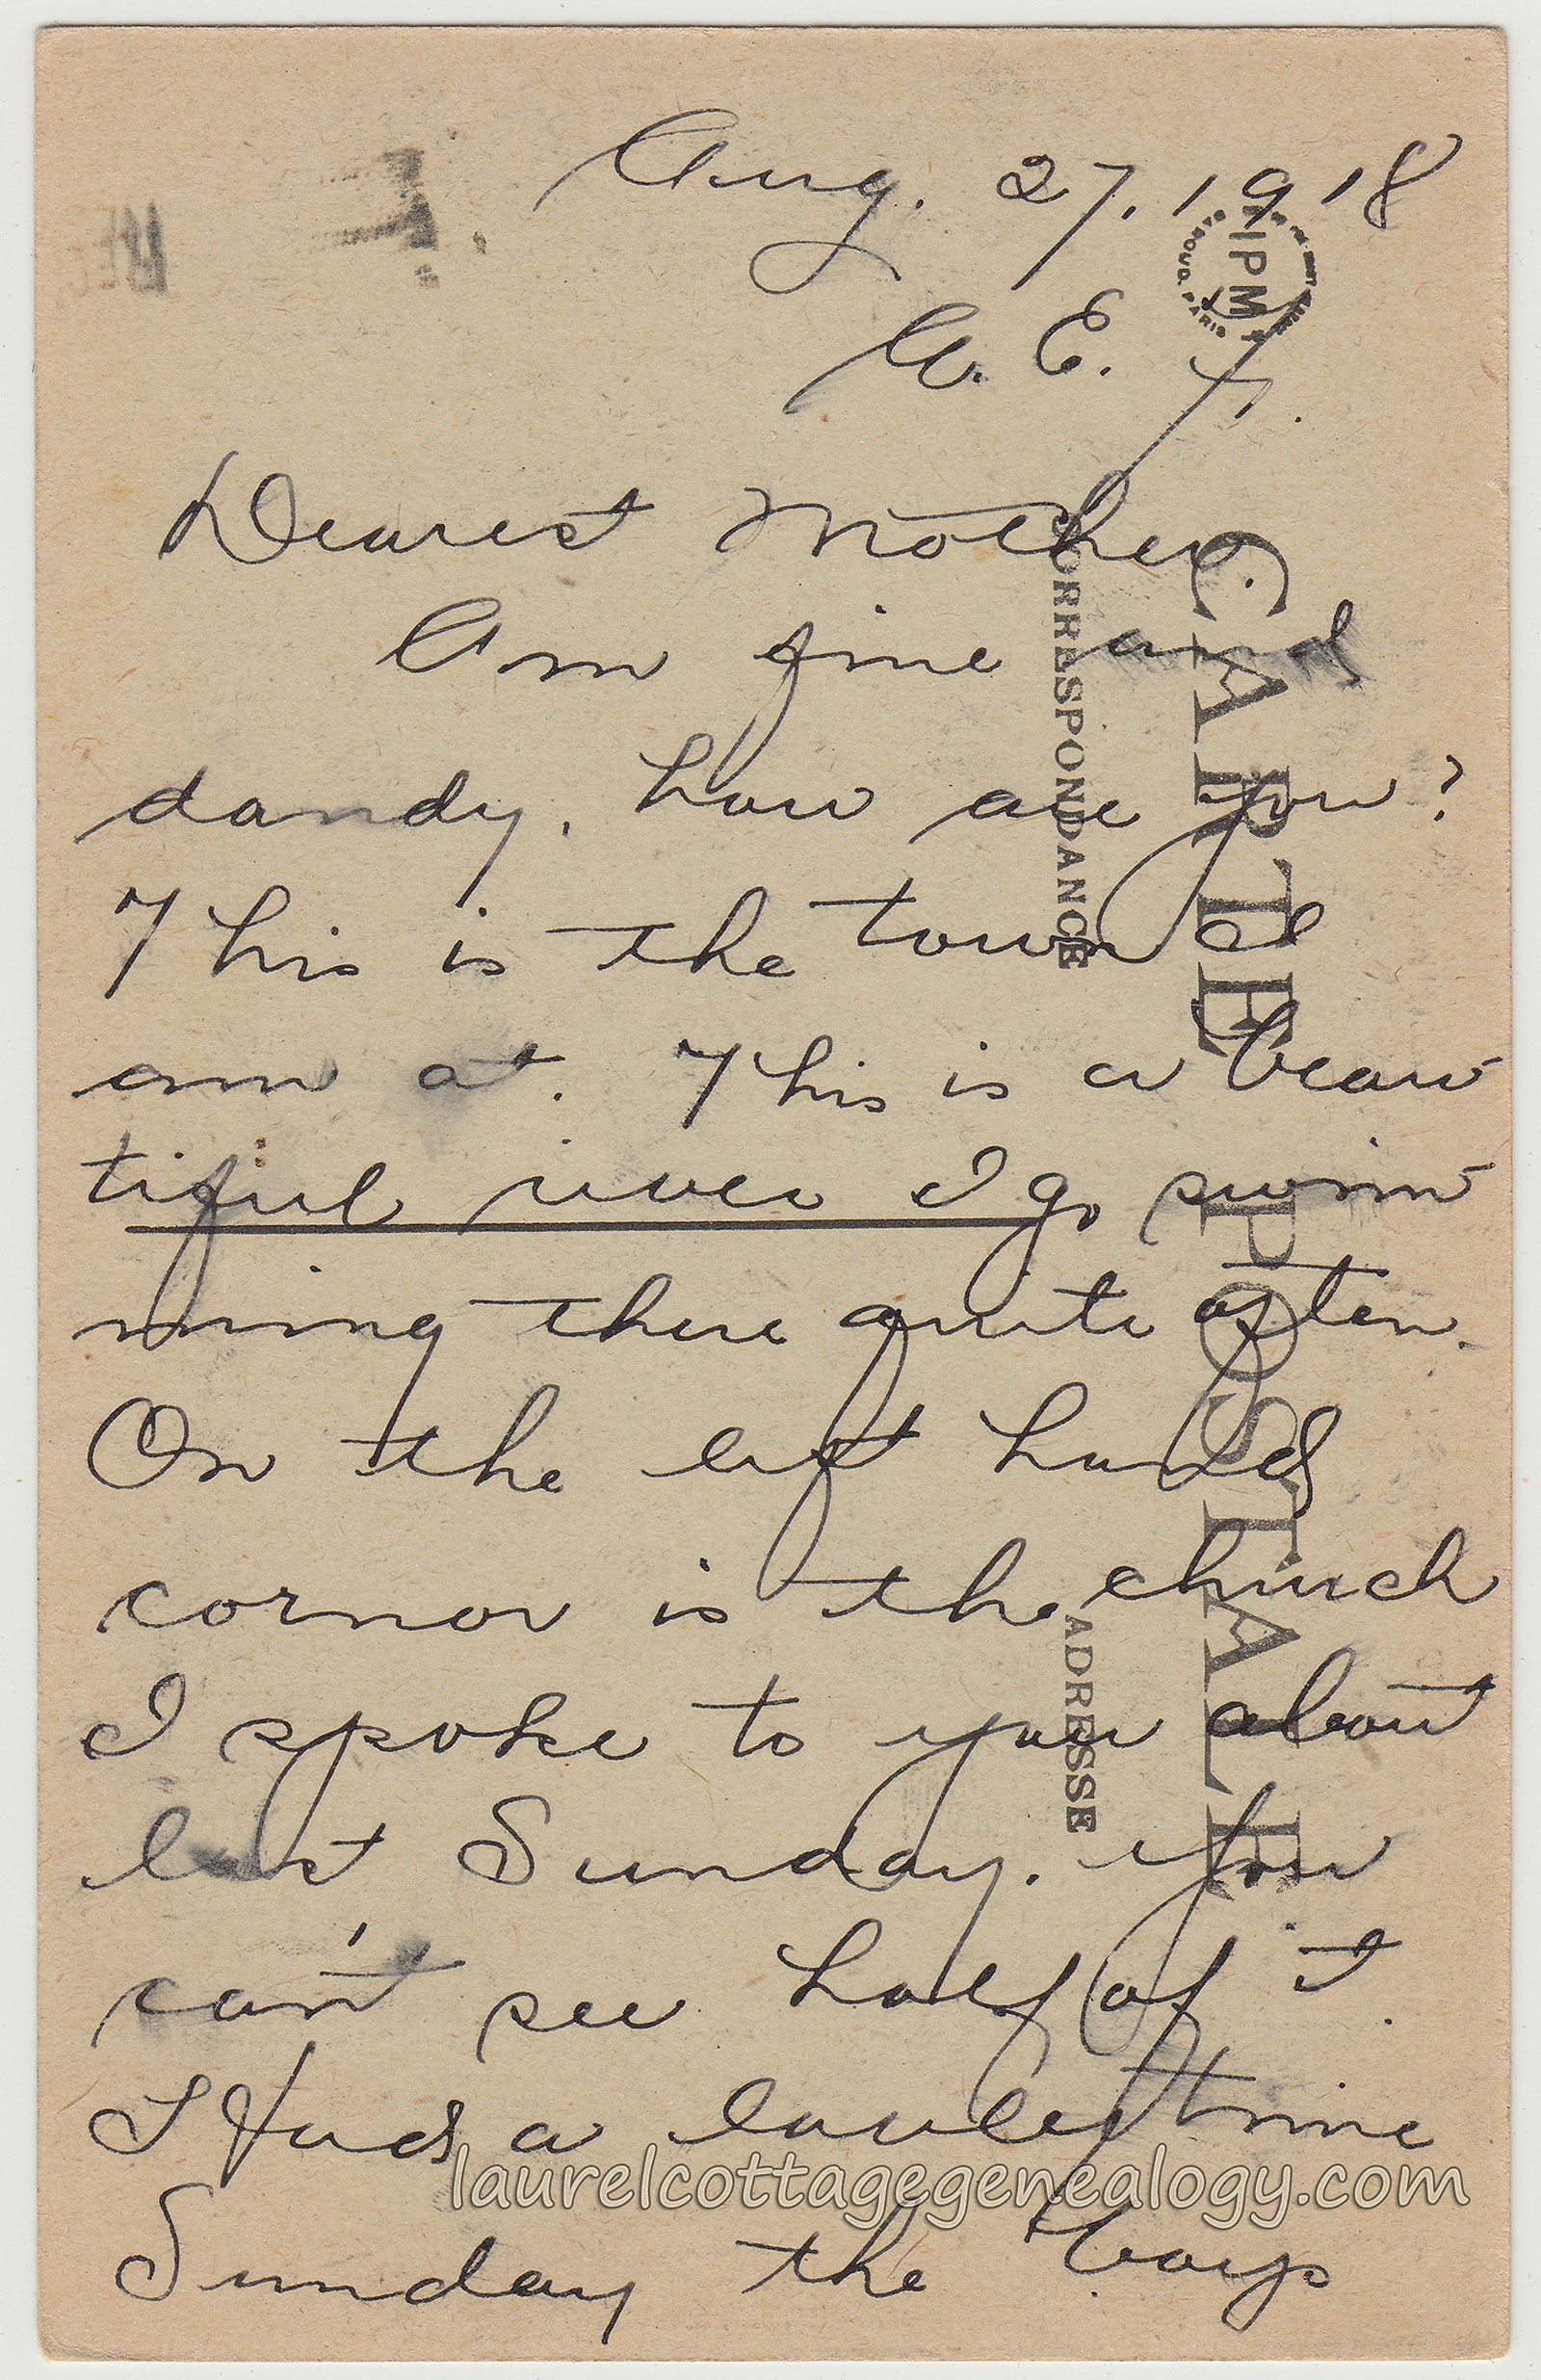 Aug. 27, 1918
A. E. F.
Dearest Mother.
Am fine and
dandy, how are you?
This is the town I
am at. This is a beau-
tiful river I go swim-
ming there quite often.
On the left hand
cornor is the church
I spoke to you about
last Sunday. You
can't see half of it.
I had a time
Sunday the boys
CARTE POSTALE
CORRESPONDANCE
ADRESSE
IPM
PARIS
laurelcottagegenealogy.com